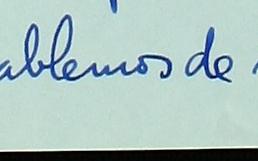 ablemos de